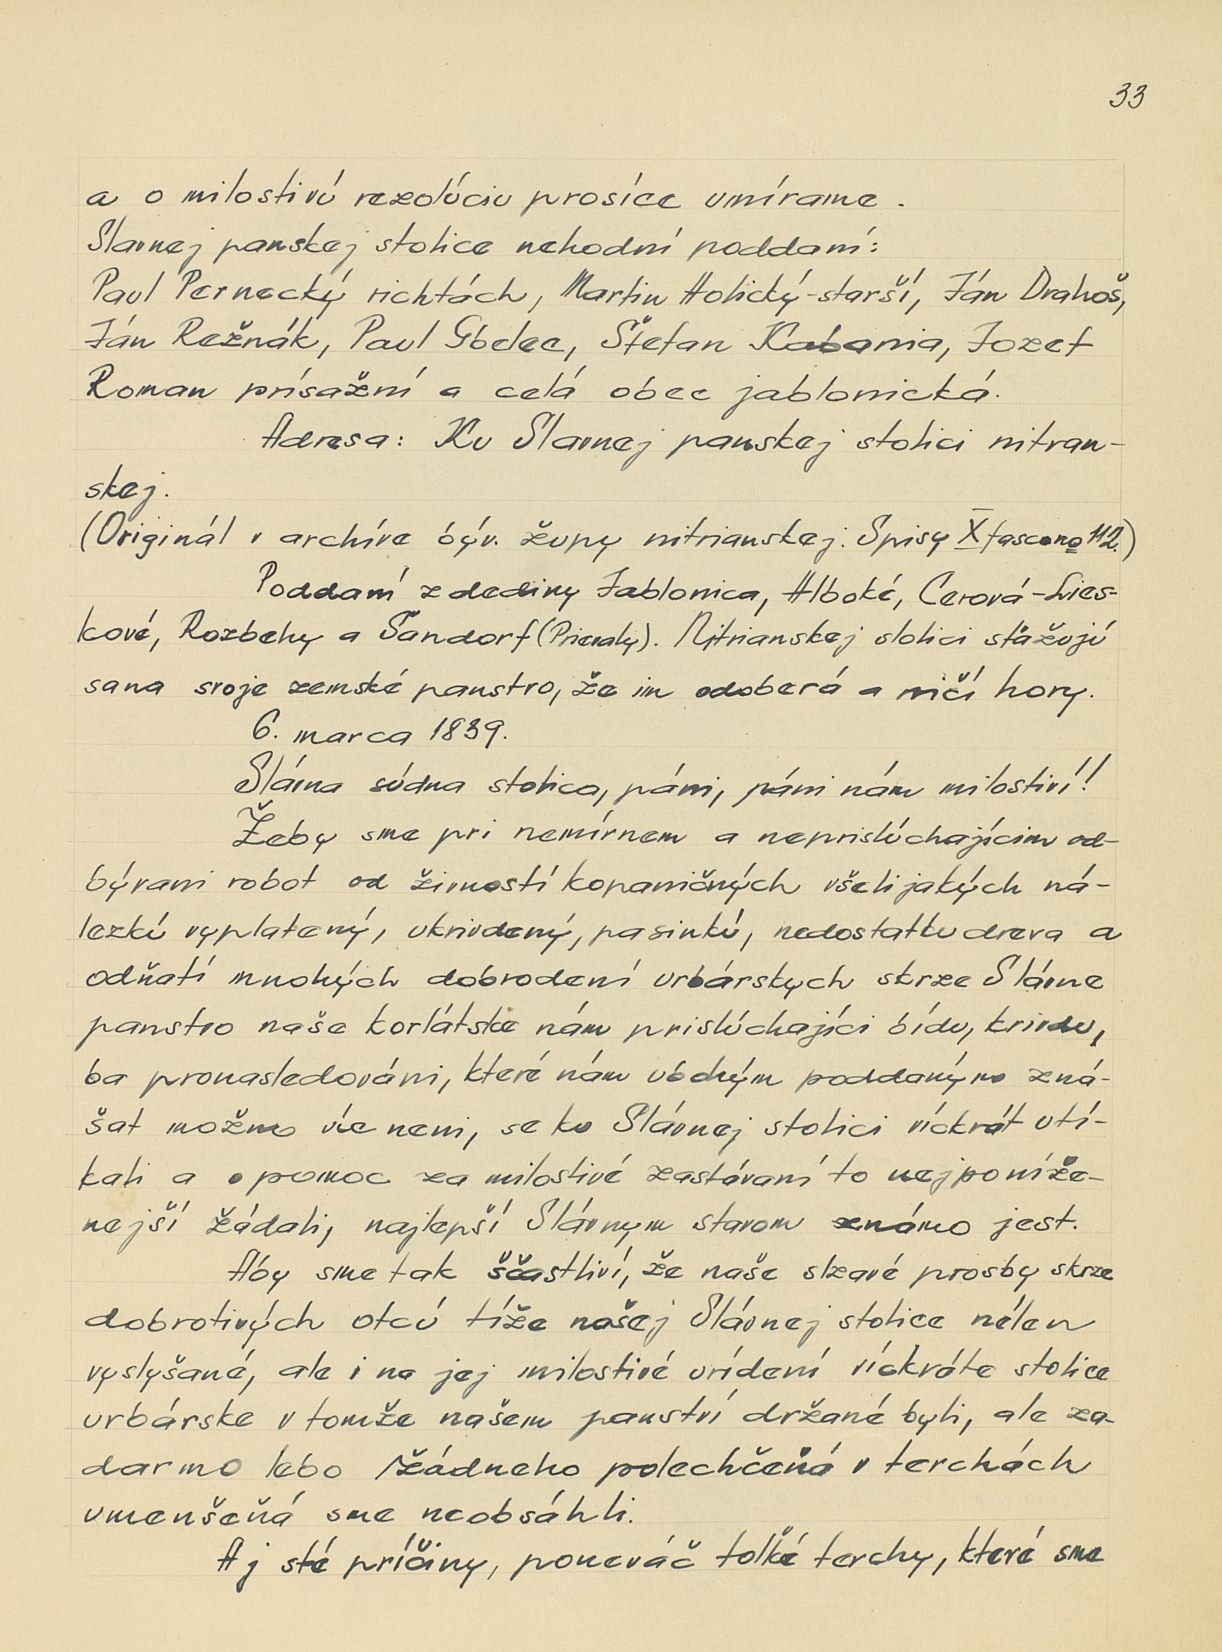 33
a o milostivú rezolúciu prosíce umírame.
Slavnej panskej stolice nehodní poddaní:
Paul Pernecký richtách, Martin Holický-starší, Ján Drahoš,
Ján Režnák, Paul Gbelec, Štefan Kabania, Jozef
Roman prísažní a celá obec jablonická.
Adresa: Ku Slavnej panskej stolici nitran-
skej.
(Originál v archíve býv. župy nitrianskej. Spisy X fasc. no 112.)
Poddaní z dediny Jablonica, Hlboké, Cerová-Lies-
kové, Rozbehy a Šandorf (Prievaly). Nitrianskej stolici sťažujú
sa na svoje zemské panstvo, že im odoberá a ničí hory.
6. marca 1839.
Slávna súdna stolica, páni, páni nám milostiví!!
Žeby sme pri nemírnem a neprislúchajícim od-
bývani robot od živností kopaničných všelijakých ná-
lezkú vyplatený, ukrivdený, pasinkú, nedostatku dreva a
odňatí mnohých dobrodení urbárskych skrze Slávne
panstvo naše korlátske nám prislúchajíci bídu, krivdu,
ba pronasledováni, které nám ubohým poddaným zná-
šat možno víc neni, se ku Slávnej stolici víckrát utí-
kali a o pomoc za milostivé zastávaní to nejponíže-
nejší žádali, najlepší Slávnym stavom známo jest.
Aby sme tak ščastliví, že naše slzavé prosby skrze
dobrotivých otcú tíže našej Slávnej stolice nélen
vyslyšané, ale i na jej milostivé urídení víckráte stolice
urbárske v tomže našem panství držané byli, ale za-
darmo lebo žádneho polechčeňá v terchách
umenšeňá sme neobsáhli.
Aj sté príčiny, poneváč tolké terchy, které sme